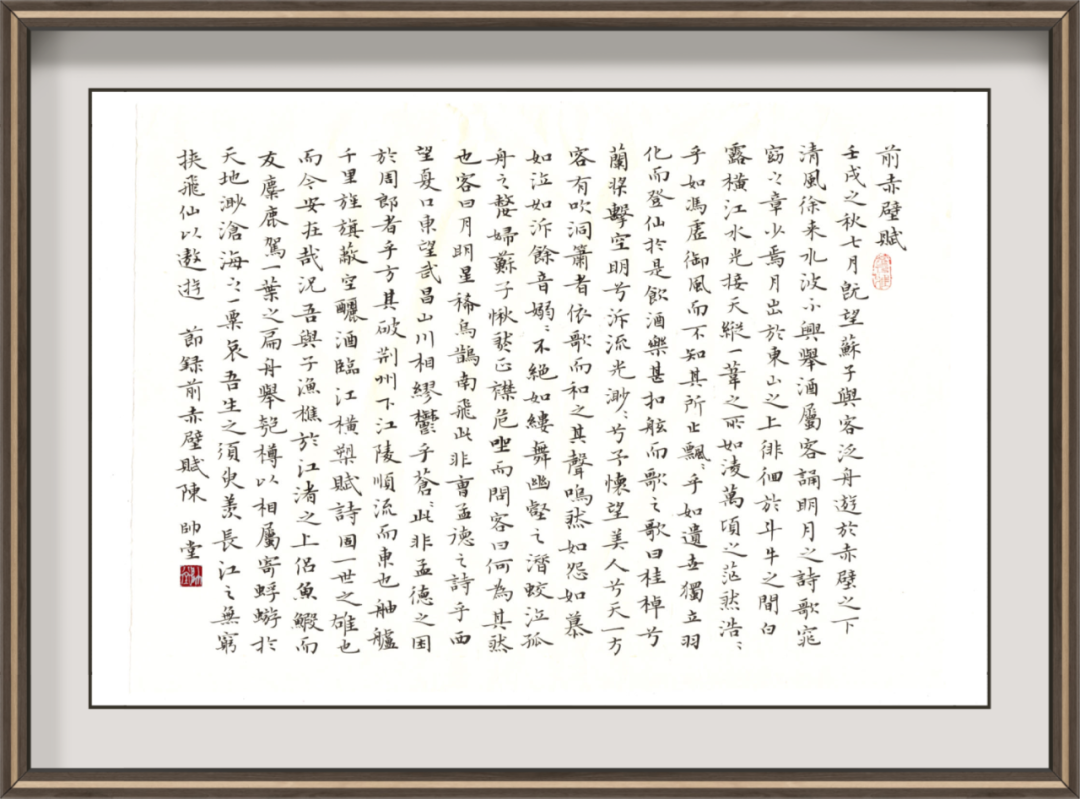 前赤壁賦
壬戌之秋七月既望蘇子與客泛舟遊於赤壁之下
清風徐来水波不興舉酒屬客誦明月之詩歌窕
窈之章少焉月出於東山之上徘徊於斗牛之間白
露橫江水光接天縱一葦之所如淩萬頃之茫然浩〻
乎如馮虛御風而不知其所止飄〻乎如遺世獨立羽
化而登仙於是飲酒樂甚扣舷而歌之歌曰桂棹兮
蘭槳擊空明兮泝流光渺〻兮予懷望美人兮天一方
客有吹洞簫者依歌而和之其聲嗚然如怨如慕
如泣如泝餘音嫋〻不絕如縷舞幽壑之潛蛟泣孤
舟之嫠婦蘇子愀然正襟危坐而問客曰何為其然
也客曰月明星稀烏鵲南飛此非曹孟德之詩乎西
望夏口東望武昌山川相繆鬱乎蒼〻此非孟德之困
於周郎者乎方其破荆州下江陵順流而東也舳艫
千里旌旗蔽空釃酒臨江橫槊賦詩固一世之雄也
而今安在哉況吾與子漁樵於江渚之上侶魚鰕而
友麋鹿駕一葉之扁舟舉匏樽以相屬寄蜉蝣於
天地渺滄海之一粟哀吾生之須臾羨長江之無窮
挾飛仙以遨遊 節録前赤壁賦陳 帥堂